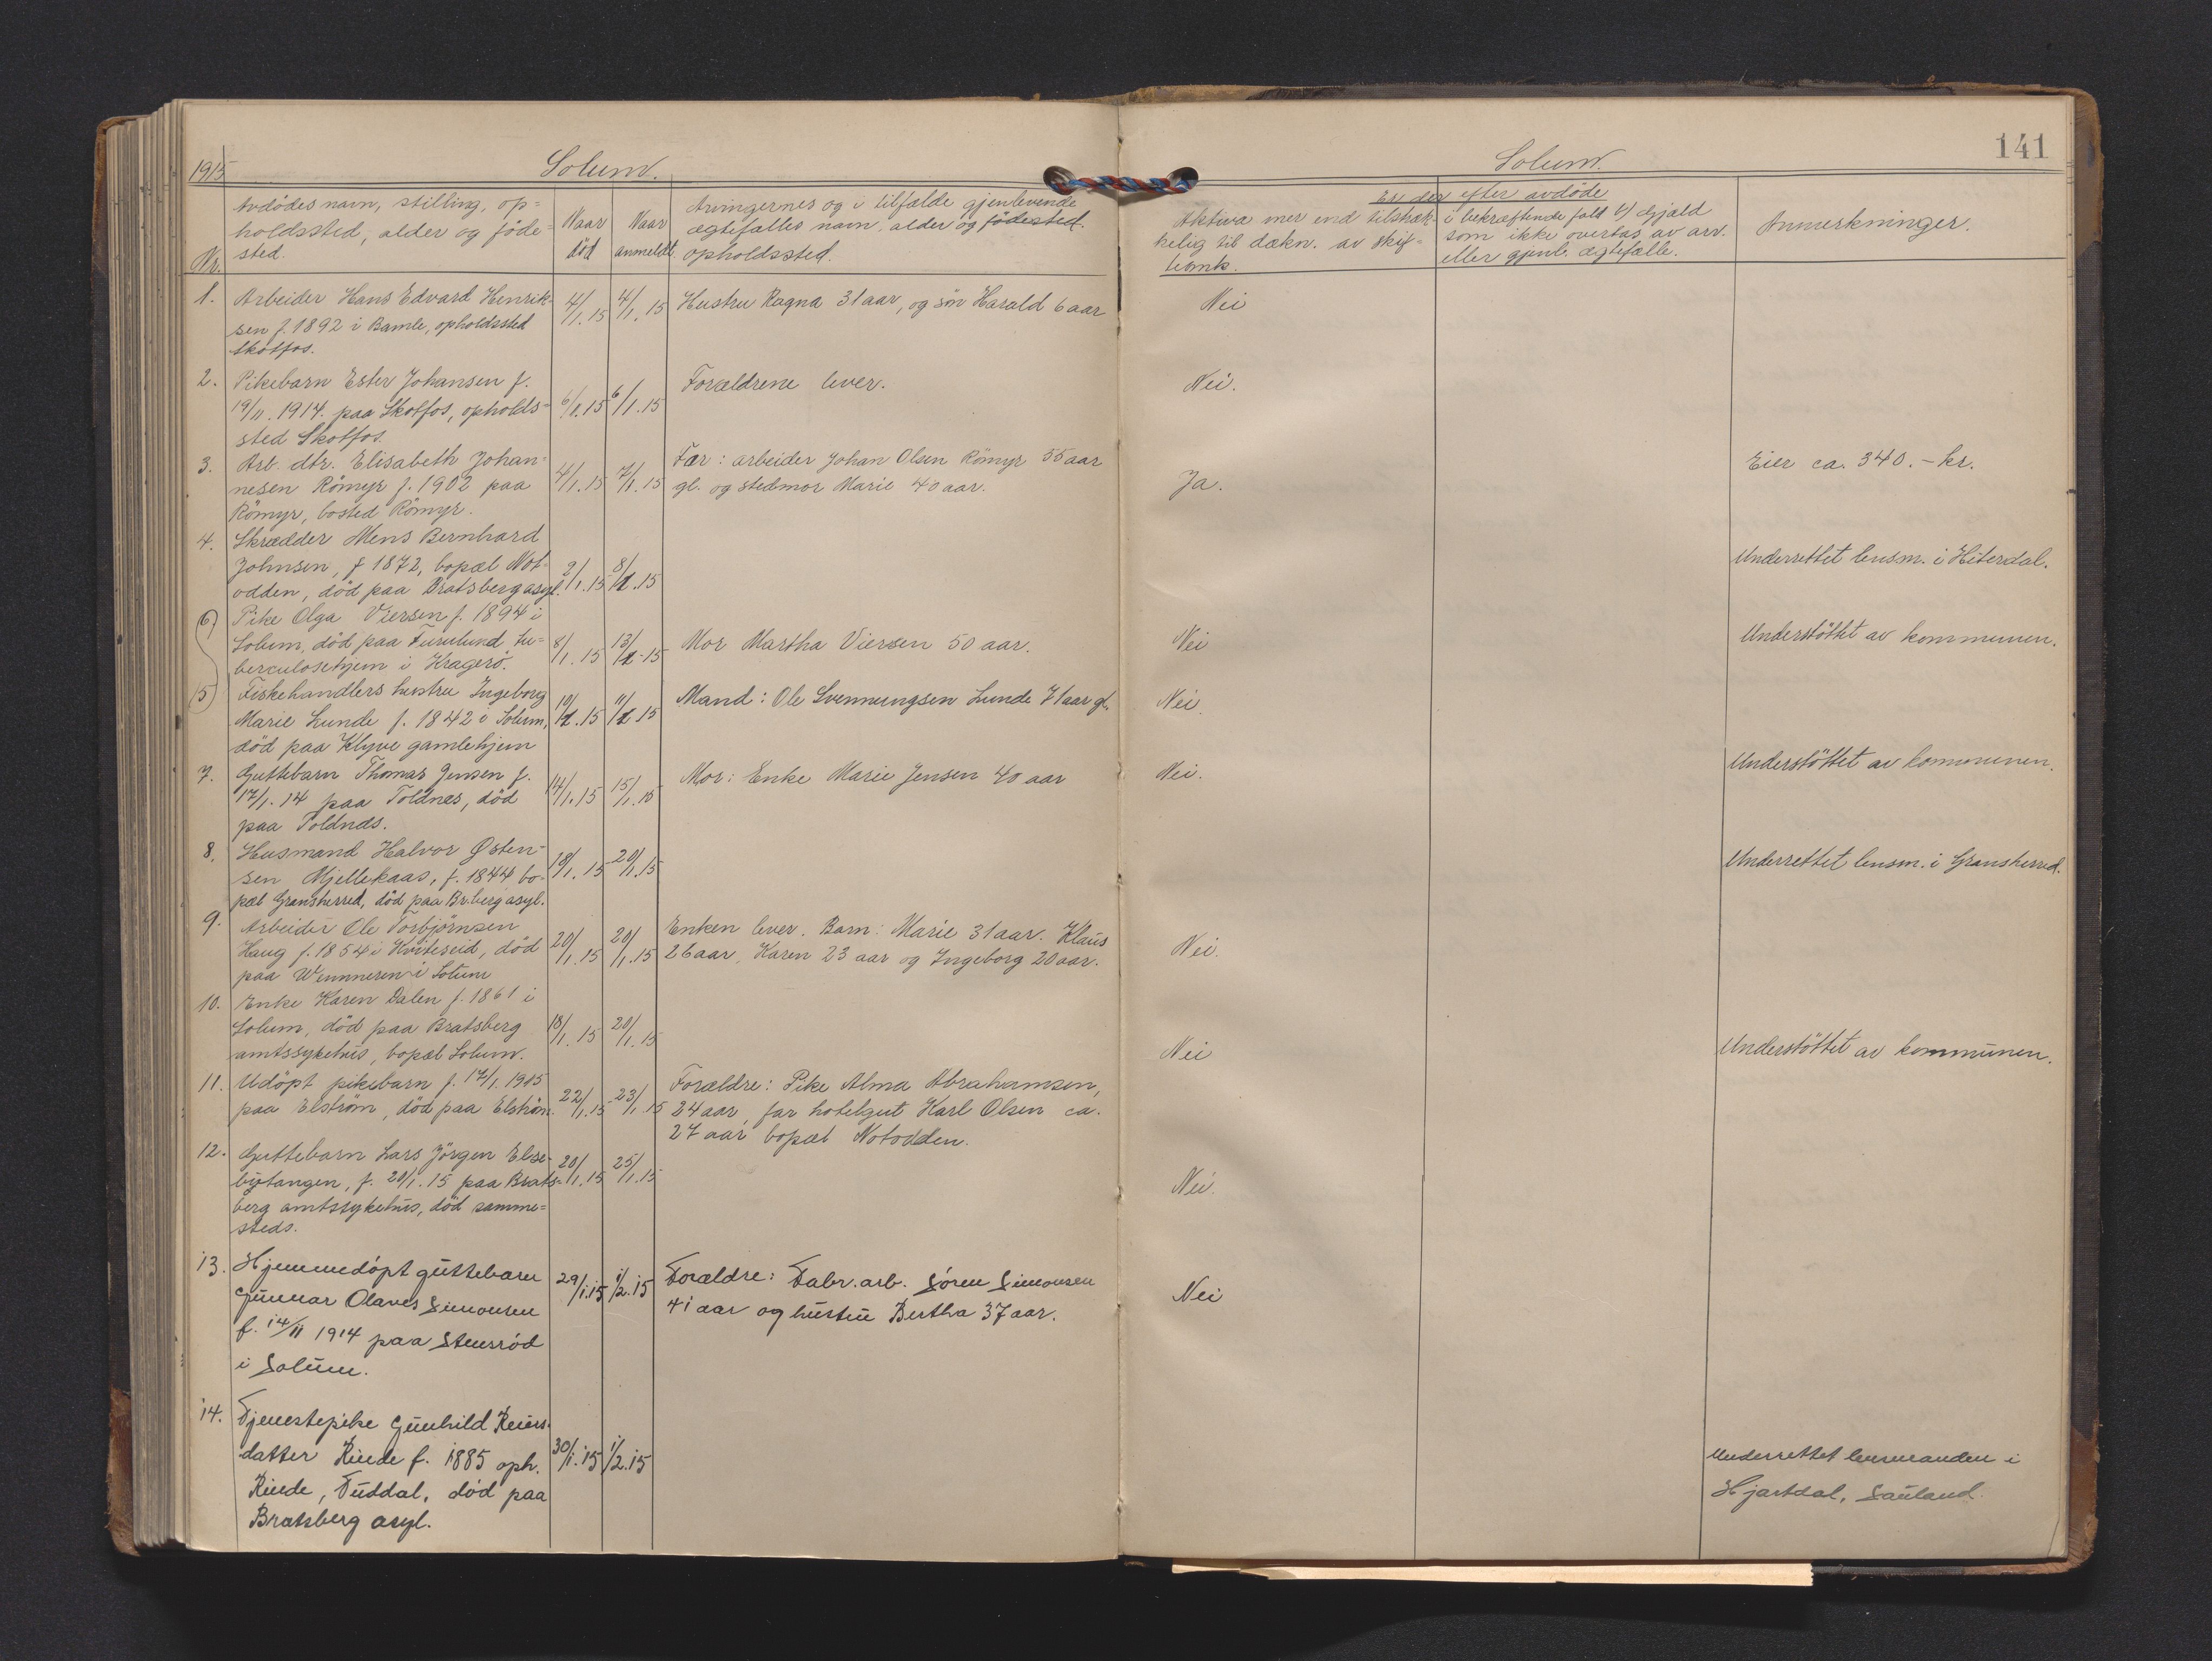 1915
Solum.
Nr.
Avdödes navn, stilling, op=
holdssted, alder og föde=
sted.
Naar
död
Naar
anmeldt.
Arvingernes og i tilfælde gjenlevende
ægtefælles navn, alder og födested.
opholdssted.
1.
Arbeider Hans Edvard Henrik-
sen f. 1892 i Bamle, opholdssted
Skotfos.
4/1.15
4/1.15
Hustru Ragna 31 aar, og sön Harald 6 aar
2.
Pikebarn Ester Johansen f.
19/11. 1914. paa Skotfos, opholds=
sted Skotfos.
6/1.15
6/1.15
Forældrene lever.
3.
Arb. dtr. Elisabeth Johan=
nesen Römyr f. 1902 paa
Römyr, bosted Römyr.
4/1.15
7/1.15
Far: arbeider Johan Olsen Römyr 55 aar
gl. og stedmor Marie 40 aar.
4.
Skrædder Mens Bernhard
Johnsen, f 1872, bopæl Not-
odden, död paa Bratsberg asyl.
2/1.15
8/1.15
6)
Pike Olga Viersen f. 1894 i
Solum, död paa Furulund tu=
berculosehjem i Kragerö.
8/1.15
13/1-15
Mor Martha Viersen 50 aar.
5)
Fiskehandlers hustru Ingeborg
Marie Lunde f. 1842 i Solum,
död paa Klyve gamlehjem
10/1.15
11/1 15
Mand: Ole Svennungsen Lunde 71 aar gl.
7.
Guttebarn Thomas Jensen f.
17/1.14 paa Toldnes, död
paa Toldnes.
14/1.15
15/1.15
Mor: Enke Marie Jensen 40 aar
8.
Husmand Halvor Østen-
sen Mjellekaas, f. 1844 bo-
pæl Gransherred, död paa Br.berg asyl.
18/1.15
20/1.15
9.
Arbeider Ole Torbjörnsen
Haug f. 1854 i Kviteseid, död
paa Wemmeren i Solum
20/1.15
20/1.15
Enken lever. Barn: Marie 31 aar. Klaus
26 aar, Karen 23 aar og Ingeborg 20 aar.
10.
Enke Karen Dalen f. 1861 i
Solum, död paa Bratsberg
amtssykehus, bopæl Solum.
18/1.15
20/1.15
11.
Udöpt pikebarn f. 17/1. 1915
paa Elström, död paa Elström.
22/1.15
23/1 15
Forældre: Pike Alma Abrahamsen,
24 aar, far hotelgut Karl Olsen ca.
27 aar bopæl Notodden.
12.
Guttebarn Lars Jörgen Else-
bytangen, f. 20/1.15 paa Brats-
berg amtssykehus, död samme=
steds.
20/1.15
25/1.15
13.
Hjemmedöpt guttebarn
Gunnar Olaves Simonsen
f. 14/11 1914 paa Stensröd
i Solum.
29/1.15
1/2.15
Forældre: Fabr. arb. Sören Simonsen
41 aar og hustru Bertha 37 aar.
14.
Tjenestepike Gunhild Reiers-
datter Rinde f. 1885 oph.
Rinde, Tuddal, död paa
Bratsberg asyl.
30/1.15
1/2.15
141
Solum.
Er der efter avdöde
Aktiva mer end tilstræk-
kelig til dækn. av skif-
teomk.
i bekræftende fald b) Gjæld
som ikke overtas av arv.
eller gjenl. ægtefælle.
Anmerkninger.
Nei
Nei.
Ja.
Eier ca. 340.- kr.
Underrettet lensm. i Hiterdal.
Nei
Understöttet av kommunen.
Nei.
Nei.
Understöttet av kommunen.
Underrettet lensm. i Gransherred.
Nei.
Nei
Understöttet av kommunen.
Nei.
Nei
Underrettet lensmanden i
Hjartdal, Sauland.